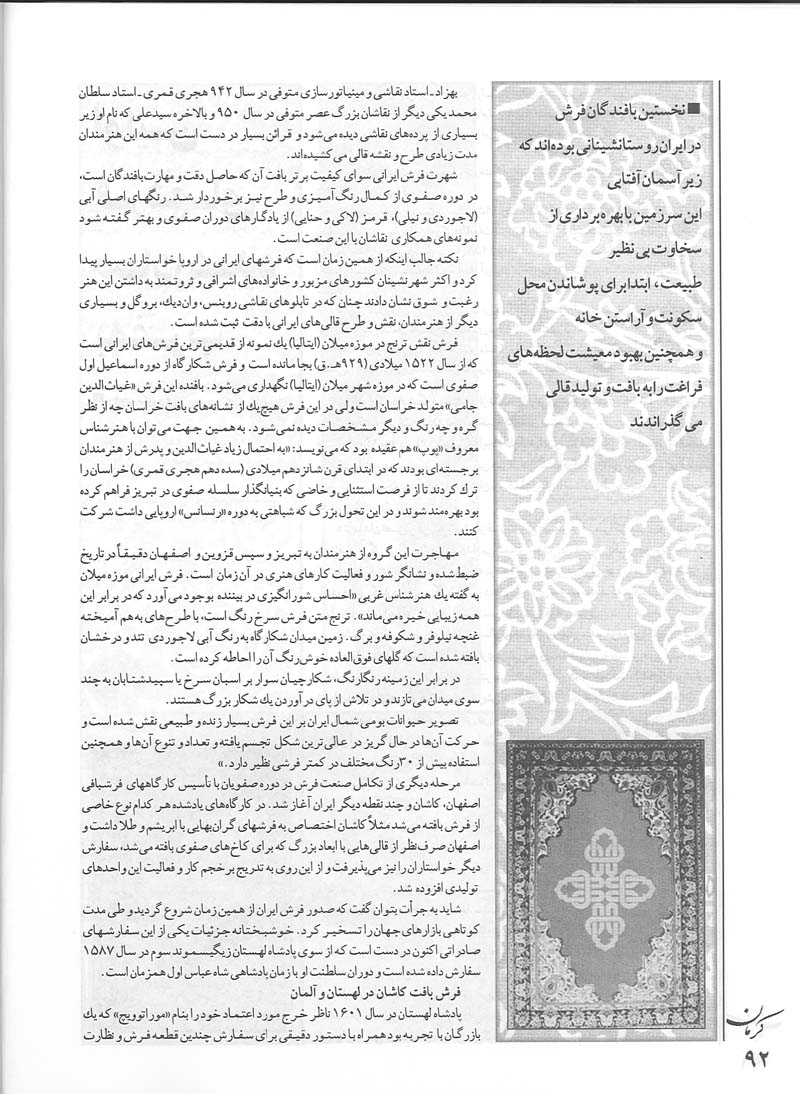 ■ نخستین بافندگان فرش
در ایران روستانشینانی بوده‌اند که
زیر آسمان آفتابی
این سرزمین با بهره برداری از
سخاوت بی نظیر
طبیعت، ابتدا برای پوشاندن محل
سکونت و آراستن خانه
و همچنین بهبود معیشت لحظه‌های
فراغت را به بافت و تولید قالی
می گذراندند
بهزاد ـ استاد نقاشی و مینیاتور سازی متوفی در سال ۹۴۲ هجری قمری ـ استاد سلطان
محمد یکی دیگر از نقاشان بزرگ عصر متوفی در سال ۹۵۰ و بالاخره سیدعلی که نام او زیر
بسیاری از پرده‌های نقاشی دیده می‌شود و قرائن بسیار در دست است که همه این هنرمندان
مدت زیادی طرح و نقشه قالی می کشیده‌اند.
شهرت فرش ایرانی سوای کیفیت برتر بافت آن که حاصل دقت و مهارت بافندگان است،
در دوره صفوی از کمال رنگ آمیزی و طرح نیز برخوردار شد. رنگهای اصلی آبی
(لاجوردی و نیلی)، قرمز (لاکی و حنایی) از یادگارهای دوران صفوی و بهتر گفته شود
نمونه‌های همکاری نقاشان با این صنعت است.
نکته جالب اینکه از همین زمان است که فرشهای ایرانی در اروپا خواستاران بسیار پیدا
کرد و اکثر شهر نشینان کشورهای مزبور و خانواده‌های اشرافی و ثروتمند به داشتن این هنر
رغبت و شوق نشان دادند چنان که در تابلوهای نقاشی روبنس، وان‌دیك، بروگل و بسیاری
دیگر از هنرمندان، نقش و طرح قالی‌های ایرانی با دقت ثبت شده است.
فرش نقش ترنج در موزه میلان (ایتالیا) یك نمونه از قدیمی ترین فرش‌های ایرانی است
که از سال ۱۵۲۲ میلادی (۹۲۹هـ.ق) بجا مانده است و فرش شکارگاه از دوره اسماعیل اول
صفوی است که در موزه شهر میلان (ایتالیا) نگهداری می‌شود. بافنده این فرش «غیاث‌الدین
جامی» متولد خراسان است ولی در این فرش هیچ‌یك از نشانه‌های بافت خراسان چه از نظر
گره و چه رنگ و دیگر مشخصات دیده نمی‌شود. به همین جهت می‌توان با هنرشناس
معروف «پوپ» هم عقیده بود که می‌نویسد: «به احتمال زیاد غیاث‌الدین و پدرش از هنرمندان
برجسته‌ای بودند که در ابتدای قرن شانزدهم میلادی (سده دهم هجری قمری) خراسان را
ترك کردند تا از فرصت استثنایی و خاضی که بنیانگذار سلسله صفوی در تبریز فراهم کرده
بود بهره‌مند شوند و در این تحول بزرگ که شباهتی به دوره «رنسانس» اروپایی داشت شرکت
کنند.
مهاجرت این گروه از هنرمندان به تبریز و سپس قزوین و اصفهان دقیقاً در تاریخ
ضبط شده و نشانگر شور و فعالیت کارهای هنری در آن زمان است. فرش ایرانی موزه میلان
به گفته یك هنرشناس غربی «احساس شورانگیزی در بیننده بوجود می‌آورد که در برابر این
همه زیبایی خیره می‌ماند». ترنج متن فرش سرخ رنگ است، با طرح‌های به‌هم آمیخته
غنچه نیلوفر و شکوفه و برگ. زمین میدان شکارگاه به رنگ آبی لاجوردی تند و درخشان
بافته شده است که گلهای فوق‌العاده خوش‌رنگ آن را احاطه کرده است.
در برابر این زمینه رنگارنگ، شکارچیان سوار بر اسبان سرخ یا سپید شتابان به چند
سوی میدان می‌تازند و در تلاش از پای در آوردن یك شکار بزرگ هستند.
تصویر حیوانات بومی شمال ایران بر این فرش بسیار زنده و طبیعی نقش شده است و
حرکت آن‌ها در حال گریز در عالی ترین شکل تجسم یافته و تعداد و تنوع آن‌ها و همچنین
استفاده بیش از ۳۰ رنگ مختلف در کمتر فرشی نظیر دارد.»
مرحله دیگری از تکامل صنعت فرش در دوره صفویان با تأسیس کارگاههای فرشبافی
اصفهان، کاشان و چند نقطه دیگر ایران آغاز شد. در کارگاه‌های یادشده هر کدام نوع خاصی
از فرش بافته می‌شد مثلاً کاشان اختصاص به فرشهای گران‌بهایی با ابریشم و طلا داشت و
اصفهان صرف‌نظر از قالی‌هایی با ابعاد بزرگ که برای کاخ‌های صفوی بافته می‌شد، سفارش
دیگر خواستاران را نیز می‌پذیرفت و از این روی به تدریج بر حجم کار و فعالیت این واحدهای
تولیدی افزوده شد.
شاید به جرأت بتوان گفت که صدور فرش ایران از همین زمان شروع گردید و طی مدت
کوتاهی بازارهای جهان را تسخیر کرد. خوشبختانه جزئیات یکی از این سفارشهای
صادراتی اکنون در دست است که از سوی پادشاه لهستان زیگیسموند سوم در سال ۱۵۸۷
سفارش داده شده است و دوران سلطنت او با زمان پادشاهی شاه عباس اول همزمان است.
فرش بافت کاشان در لهستان و آلمان
پادشاه لهستان در سال ۱۶۰۱ ناظر خرج مورد اعتماد خود را بنام «موراتوویچ» که یك
بازرگان با تجربه بود همراه با دستور دقیقی برای سفارش چندین قطعه فرش و نظارت
کرمان
۹۲